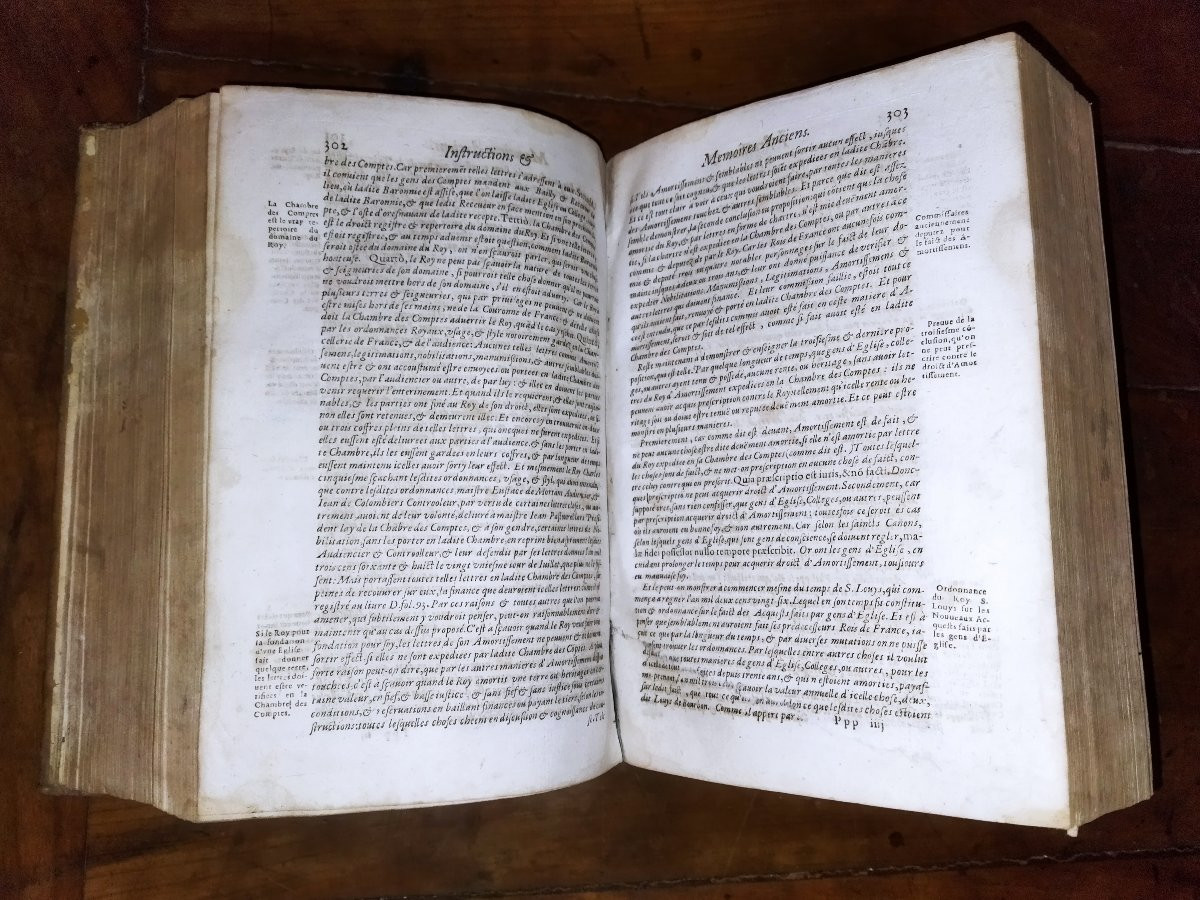 302
Instructions &
bre des Comptes. Car premierement telles lettres s'adressent
il convient que les gens des Comptes mandent aux Bailly &
lieu, où ladite Baronnie est assise, que l'on laisse ladite Eglise ou College
de ladite Baronnie, & que ledit Receueur en face mention
pte, & l'oste d'oresnauant de ladite recepte. Tertiò, la Chambre des Comptes
est le droict registre & repertoire du domaine du Roy. Et si
estoit registree, & au temps aduenir estoit question, comment ladite Baronnie
seroit ostee du domaine du Roy, on n'en sçauroit parler, qui seroit
honteuse. Quartò, le Roy ne peut pas sçauoir la nature de toutes les
& seigneuries de son domaine, si pourroit telle chose donner
ne voudroit mettre hors de son domaine, s'il en estoit aduerty. Car le Roy
plusieurs terres & seigneuries, qui par priuileges ne peuuent
estre mises hors de ses mains, ne de la Couronne de France: &
doit la Chambre des Comptes aduertir le Roy, quād le cas
par les ordonnances Royaux, vsage, & style notoirement gardez en la Chan-
cellerie de France, & de l'audience: Aucunes telles lettres comme Amortis-
semens, legitimations, nobilitations, manumissions, & autres semblables
estre & ont accoustumé estre enuoyees ou portees en ladite Chambre des
Comptes, par l'audiencier ou autre, de par luy: & illec
venir requerir l'enterinement. Et quand ils le requerent,
nables, & les parties ont finé au Roy de son droict, elles sont expediees, ou si
non elles sont retenues, & demeurent illec. Et encores
ou trois coffres pleins de telles lettres, qui oncques ne furent expediees. Et si
elles eussent esté deliurees aux parties à l'audience, & sans les porter en ladi-
te Chambre, ils les eussent gardees en leurs coffres, & par longueur de temps
eussent maintenu icelles auoir sorty leur effect. Et mesmement le Roy Charles
cinquiesme sçachant lesdites ordonnances, vsage, & styl,
que contre lesdites ordonnances maistre Eustace de Morsan Audiencier, &
Iean de Colombiers Controoleur, par vertu de certaines lettres closes, ou au-
trement auoient de leur volonté, deliuré à maistre Iean Pastourel
dent lay de la Chābre des Comptes, & à son gendre, certaines lettres de No-
bilitation, sans les porter en ladite Chambre, en reprint bien asprement lesdits
Audiencier & Controolleur, & leur defendit par ses lettres données l'an mil
trois cens soixante & huict le vingt vniesme iour de Iuillet, que plus ne le
fissent: Mais portassent toutes telles lettres en ladite Chambre des Comptes, sur
peines de recouurer sur eux, la finance que deuroient icelles lettres:
registré au liure D. fol. 93. Par ces raisons & toutes autres que l'on
amener, qui subtilement y voudroit penser, peut-on raisonnablement
maintenir qu'au cas dessus proposé. C'est à sçauoir quand le Roy
fondation pour soy, les lettres de son Amortissement ne peuuent
sortir effect, si elles ne sont expediees par la Chambre des Cōptes. A
forte raison peut-on dire, que par les autres manieres d'Amortissement
touchees: c'est à sçauoir quand le Roy amortit vne terre ou heritage
taine valeur, en fief, & basse iustice, & sans fief & sans iustice sous
conditions, & reseruations en baillant finances ou payant
structions: toutes lesquelles choses cheent en discussion & cognoissance de cau-
La Chambre
des Comptes
est le vray re-
pertoire du
domaine du
Roy.
Si le Roy pour
la fondation
d'vne Eglise
fait donner
quelque terre,
les lettres doi-
uent estre ve-
rifiees en la
Chambre des
Comptes.
303
Memoires Anciens.
Amortissemens & semblables ne peuuent sortir aucun effect, iusques
à tant que tout ce soit cognu, & que les lettres soiēt expediees en ladite Chābre.
Et si est tout cler à voir à ceux qui voudroient faire, par toutes les manieres
des Amortissement touchez, & autres semblables. Et parce que dit est assez
semble demonstrer, la seconde conclusion ou proposition: qui cōtient que la chose
amortie du Roy, & par lettres en forme de chartre, n'est mie deuëment amor-
tie, si la chartre n'est expediee en la Chambre des Comptes, ou par autres à ce
commis & deputez de par le Roy. Car les Rois de France ont aucunesfois com-
mis & deputé trois ou quatre notables personnages sur le faict de leur do-
maine iusques à deux ou trois ans, & leur ont donné puissance de verifier &
expedier Nobilitations, Manumissions, Legitimations, Amortissemens &
autres lettres qui doiuent finance. Et leur commission faillie, estoit tout ce
qu'ils auoient fait, renuoyé & porté en ladite Chambre des Comptes. Et pour
ce est entendu, que ce par lesdits commis auoit esté fait en ceste matiere d'A-
mortissement, seroit & soit de tel effect, comme si fait auoit esté en ladite
Chambre des Comptes.
Reste maintenant à demonstrer & enseigner la troisiesme & derniere pro-
position, que est telle. Par quelque longueur de temps, que gens d'Eglise, colle-
ges, ou autres ayent tenu & possedé, aucune rente, ou heritage, sans auoir let-
tres du Roy d'Amortissement expedices en la Chambre des Comptes: ils ne
peuuent auoir acquis prescription contre le Roy: tellement qu'icelle rente ou he-
ritage soit ou doiue estre tenu ou reputee deuëment amortie. Et ce peut estre
monstré en plusieurs manieres.
Premierement, car comme dit est deuant, Amortissement est de fait, &
ne peut aucune chose estre dite deuëment amortie, si elle n'est amortie par lettre
du Roy expediee en sa Chambre des Comptes (comme dit est.) Toutes lesquel-
les choses sont de faict, & ne met-on prescription en aucune chose de faict, con-
tre celuy contre qui on prescript. Quia præscriptio est iuris, & nō facti, Donc-
ques prescription ne peut acquerir droict d'Amortissement. Secondement, car
supposé ores, sans rien confesser, que gens d'Eglise, Colleges, ou autres, peussent
par prescription acquerir droict d'Amortissement; toutesfois ce seroit es cas
où ils auroient eu bonne foy, & non autrement. Car selon les saincts Canons,
selon lesquels gens d'Eglise, qui sont gens de conscience, se doiuent regler, ma-
læ fidei possessor nullo tempore præscribit. Or ont les gens d'Eglise, en
cuidant prolonger le temps pour acquerir droict d'Amortissement, tousiours
eu mauuaise foy.
Et se peut-on monstrer à commencer mesme du temps de S. Louys, qui com-
mença à regner l'an mil deux cens vingt-six. Lequel en son temps fit constitu-
tion & ordonnance sur le faict des Acquests faits par gens d'Eglise. Et est à
penser que semblablement auroient fait ses predecesseurs Rois de France, ia-
soit ce que par la longueur du temps, & par diuerses mutations on ne puisse
pas trouuer les ordonnances. Par lesquelles entre autres choses il voulut
que toutes manieres de gens d'Eglise, Colleges, ou autres, pour les
depuis trente ans, & qui n'estoient amorties, payas-
sçauoir la valeur annuelle d'icelle chose, deux,
que lesdites choses estoient
de Louys de Bourbon. Comme il appert par
Ppp iiij
Commissaires
anciennement
deputez pour
le faict des A-
mortissemens.
Preuue de la
troisiesme cō-
clusion, qu'on
ne peut pres-
crire contre le
droict d'Amor
tissement.
Ordonnance
du Roy S.
Louys sur les
Nouueaux Ac-
quests faits par
les gens d'E-
glise.